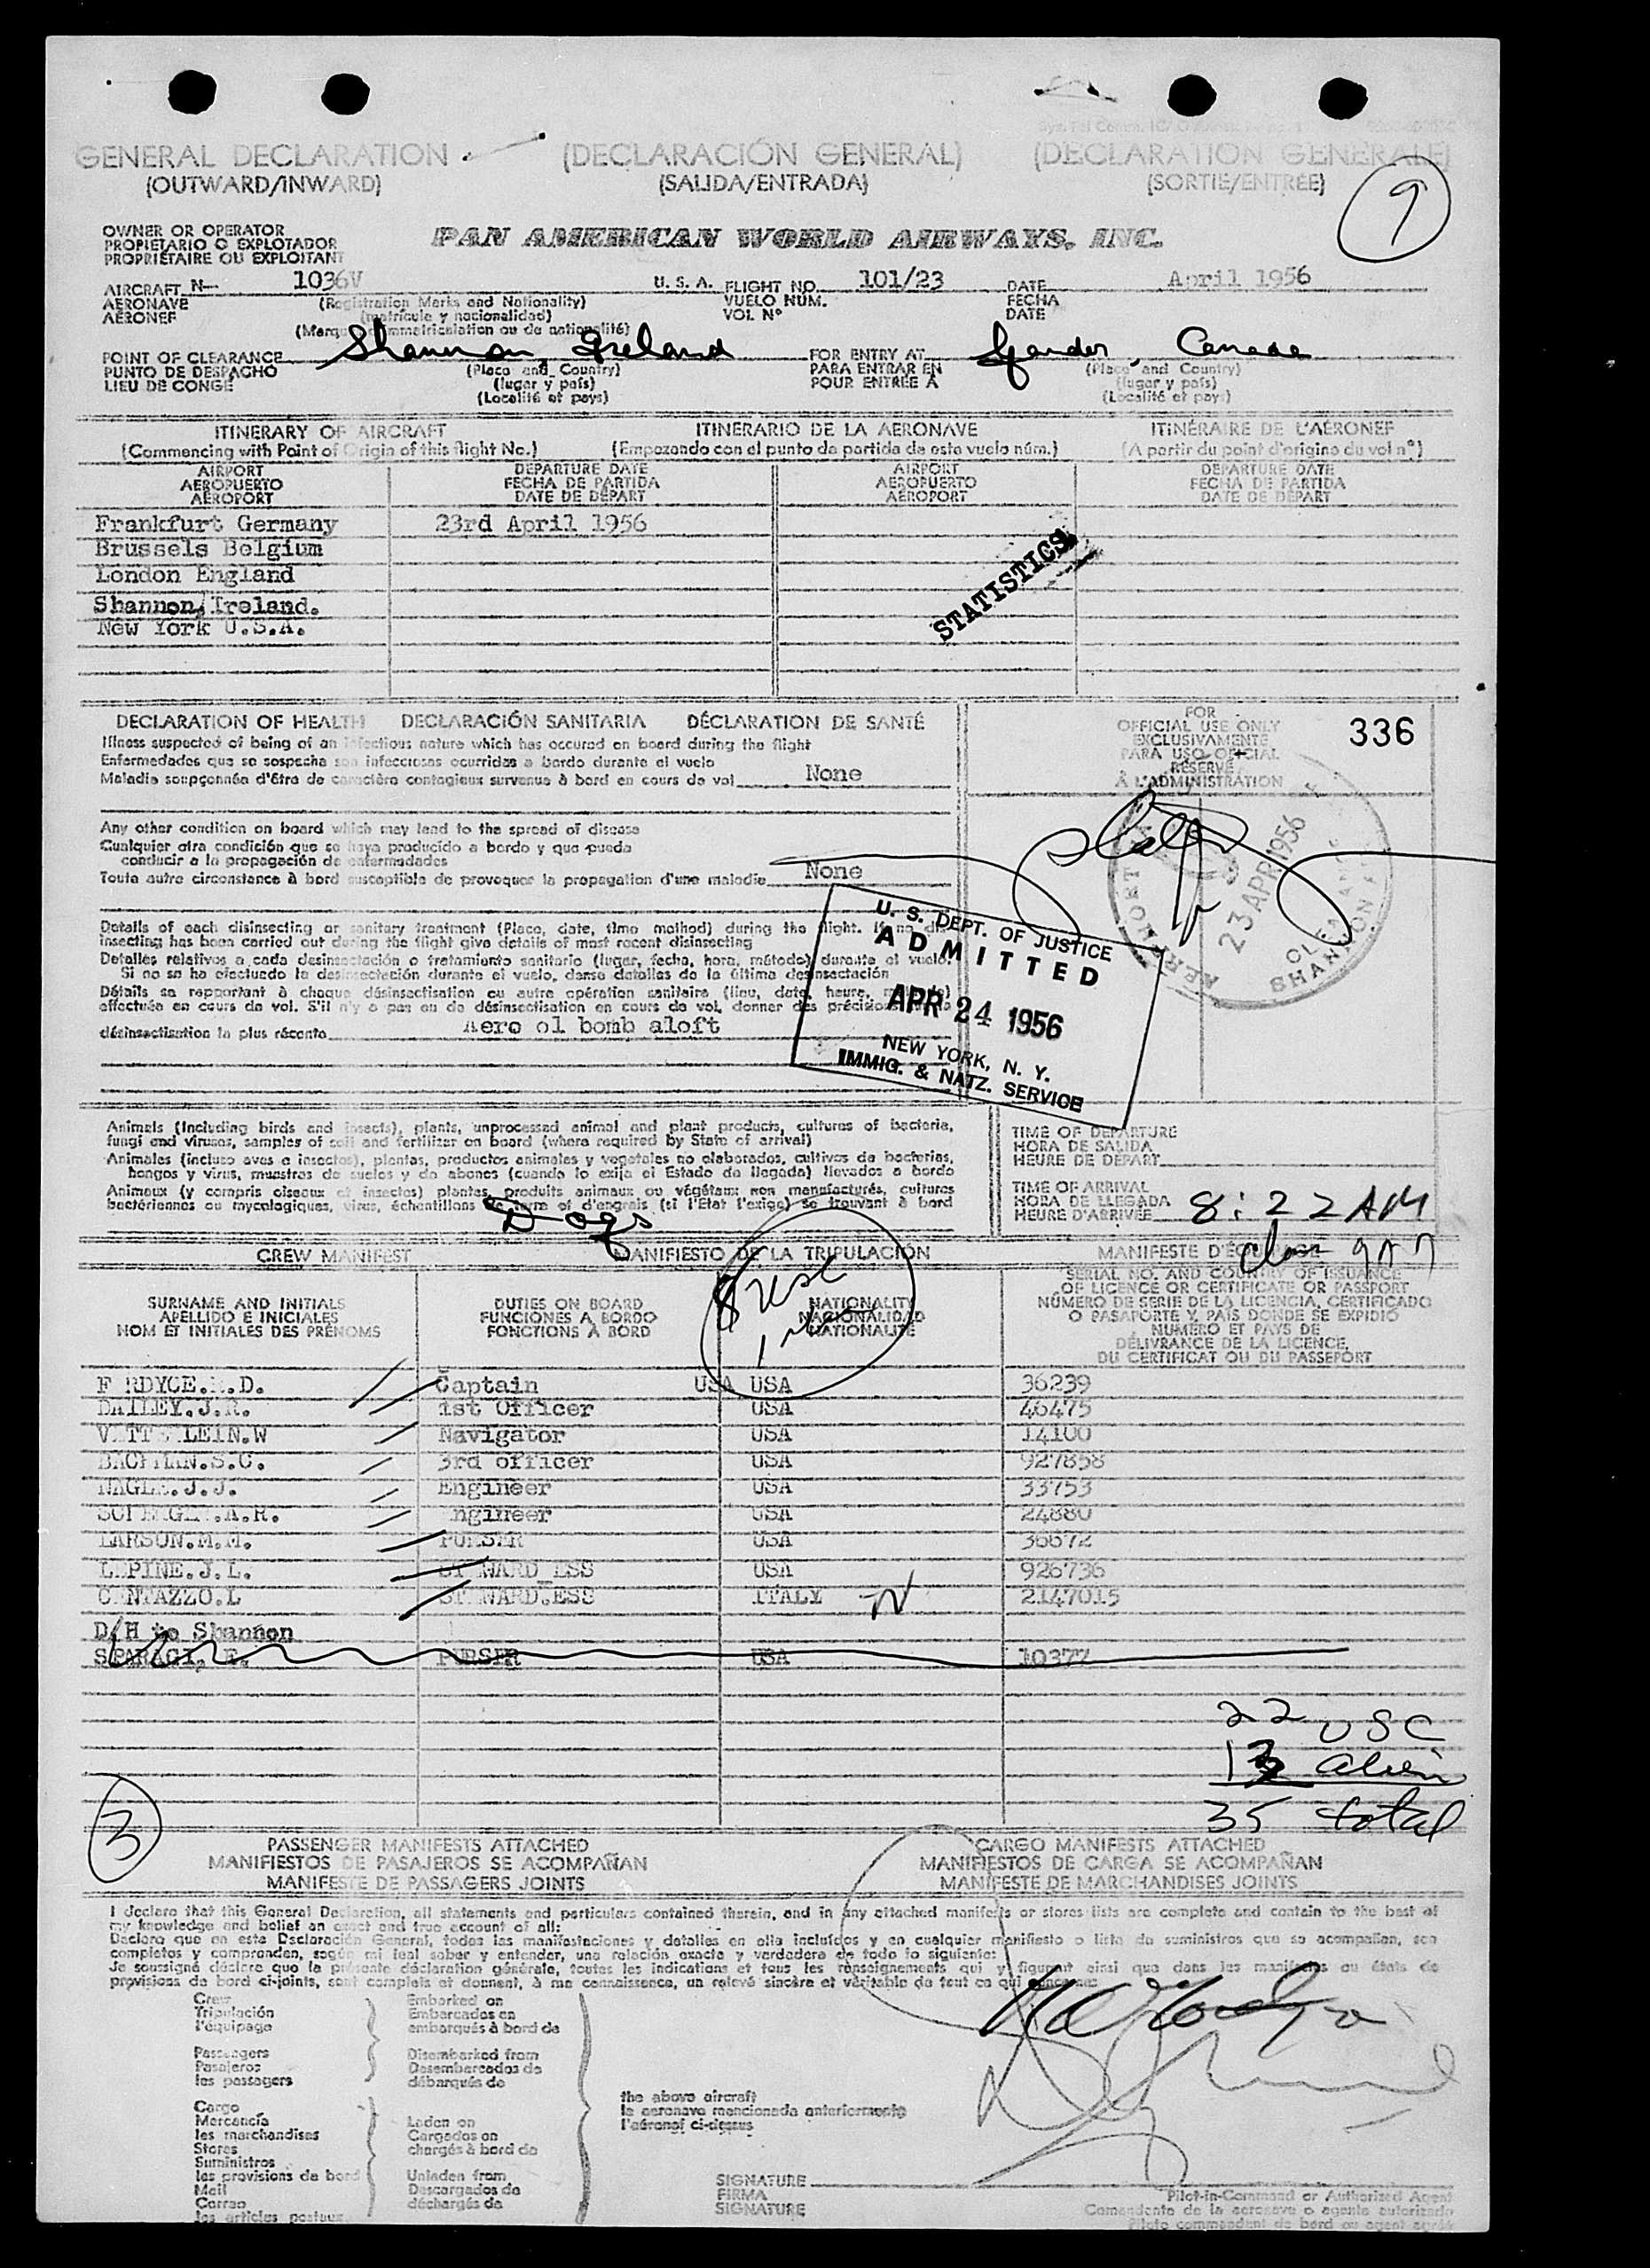 GENERAL DECLARATION (DECLARACIÓN GENERAL) (DECLARATION GENERALE)
(OUTWARD/INWARD) (SALIDA/ENTRADA) (SORTIE/ENTRÉE)
9
OWNER OR OPERATOR
PROPIETARIO O EXPLOTADOR
PROPRIÉTAIRE OU EXPLOITANT
PAN AMERICAN WORLD AIRWAYS, INC.
AIRCRAFT N— 1036V U. S. A. FLIGHT NO. 101/23 DATE April 1956
AERONAVE (Registration Marks and Nationality) VUELO NÚM. FECHA
AÉRONEF (matrícula y nacionalidad) VOL Nº DATE
POINT OF CLEARANCE Shannon, Ireland FOR ENTRY AT Gander, Canada
PUNTO DE DESPACHO (Place and Country) PARA ENTRAR EN (Place and Country)
LIEU DE CONGÉ (lugar y país) POUR ENTRÉE À (lugar y país)
(Localité et pays) (Localité et pays)
ITINERARY OF AIRCRAFT ITINERARIO DE LA AERONAVE ITINÉRAIRE DE L'AÉRONEF
(Commencing with Point of Origin of this flight No.) (Empezando con el punto de partida de este vuelo núm.) (A partir du point d'origine du vol nº)
AIRPORT DEPARTURE DATE AIRPORT DEPARTURE DATE
AEROPUERTO FECHA DE PARTIDA AEROPUERTO FECHA DE PARTIDA
AÉROPORT DATE DE DÉPART AÉROPORT DATE DE DÉPART
Frankfurt Germany 23rd April 1956
Brussels Belgium
London England
Shannon, Ireland.
New York U.S.A.
STATISTICS
DECLARATION OF HEALTH DECLARACIÓN SANITARIA DÉCLARATION DE SANTÉ
Illness suspected of being of an infectious nature which has occured on board during the flight
Enfermedades que se sospecha son infecciosas ocurridas a bordo durante el vuelo
Maladie soupçonnée d'être de caractère contagieux survenue à bord en cours de vol None
FOR
OFFICIAL USE ONLY
EXCLUSIVAMENTE
PARA USO OFICIAL
RÉSERVÉ
À L'ADMINISTRATION
336
Any other condition on board which may lead to the spread of disease
Cualquier otra condición que se haya producido a bordo y que pueda
conducir a la propagación de enfermedades
Toute autre circonstance à bord susceptible de provoquer la propagation d'une maladie None
23 APR 1956
SHANNON
Details of each disinsecting or sanitary treatment (Place, date, time method) during the flight. If no dis-
insecting has been carried out during the flight give details of most recent disinsecting
Detalles relativos a cada desinsectación o tratamiento sanitario (lugar, fecha, hora, método) durante el vuelo.
Si no se ha efectuado la desinsectación durante el vuelo, danse detalles de la última desinsectación
Détails se rapportant à chaque désinsectisation ou autre opération sanitaire (lieu, date, heure,
effectuée en cours de vol. S'il n'y a pas eu de désinsectisation en cours de vol, donner des précisions
désinsectisation la plus récente Aero ol bomb aloft
U. S. DEPT. OF JUSTICE
ADMITTED
APR 24 1956
NEW YORK, N. Y.
IMMIG. & NATZ. SERVICE
Animals (Including birds and insects), plants, unprocessed animal and plant products, cultures of bacteria,
fungi and viruses, samples of soil and fertilizer on board (where required by State of arrival)
Animales (incluso aves e insectos), plantas, productos animales y vegetales no elaborados, cultivos de bacterias,
hongos y virus, muestras de suelos y de abonos (cuando lo exija el Estado de llegada) llevados a bordo
Animaux (y compris oiseaux et insectes) plantes, produits animaux ou végétaux non manufacturés, cultures
bactériennes ou mycologiques, virus, échantillons de terre et d'engrais (si l'Etat l'exige) se trouvant à bord
Dogs
TIME OF DEPARTURE
HORA DE SALIDA
HEURE DE DÉPART
TIME OF ARRIVAL
HORA DE LLEGADA
HEURE D'ARRIVÉE 8:22 AM
CREW MANIFEST MANIFIESTO DE LA TRIPULACIÓN MANIFESTE D'ÉQUIPAGE
SURNAME AND INITIALS DUTIES ON BOARD NATIONALITY SERIAL NO. AND COUNTRY OF ISSUANCE
APELLIDO E INICIALES FUNCIONES A BORDO NACIONALIDAD OF LICENCE OR CERTIFICATE OR PASSPORT
NOM ET INITIALES DES PRÉNOMS FONCTIONS À BORD NATIONALITÉ NÚMERO DE SERIE DE LA LICENCIA, CERTIFICADO
O PASAPORTE Y PAÍS DONDE SE EXPIDIÓ
NUMÉRO ET PAYS DE
DÉLIVRANCE DE LA LICENCE,
DU CERTIFICAT OU DU PASSEPORT
8 USC
F RDYCE. .D. Captain USA USA 36239
DAILEY.J.R. 1st Officer USA 46475
V TT LEIN.W Navigator USA 14100
BACHMAN.S.C. 3rd officer USA 927858
NAGLE.J.J. Engineer USA 33753
.A.R. ngineer USA 24880
LARSON.M.M. PURSER USA 36672
L PINE.J.L. ST WARD_ESS USA 926736
C NTAZZO.L ST WARD.ESS ITALY N 2147015
D/H to Shannon
SPARAGI, E. PURSER USA 10377
22 USC
13 alien
35 total
3
PASSENGER MANIFESTS ATTACHED CARGO MANIFESTS ATTACHED
MANIFIESTOS DE PASAJEROS SE ACOMPAÑAN MANIFIESTOS DE CARGA SE ACOMPAÑAN
MANIFESTE DE PASSAGERS JOINTS MANIFESTE DE MARCHANDISES JOINTS
I declare that this General Declaration, all statements and particulars contained therein, and in any attached manifests or stores lists are complete and contain to the best of
my knowledge and belief an exact and true account of all:
Declaro que en esta Declaración General, todas las manifestaciones y detalles en ella incluídos y en cualquier manifiesto o lista de suministros que se acompañan, son
completos y comprenden, según mi leal saber y entender, una relación exacta y verdadera de todo lo siguiente:
Je soussigné déclare que la présente déclaration générale, toutes les indications et tous les renseignements qui y figurent ainsi que dans les manifestes ou états de
provisions de bord ci-joints, sont complets et donnent, à ma connaissance, un relevé sincère et véritable de tout ce qui concerne:
Crew Embarked on
Tripulación Embarcados en
l'équipage embarqués à bord de
Passengers Disembarked from
Pasajeros Desembarcados de
les passagers débarqués de
Cargo
Mercancía Laden on
les marchandises Cargados en
Stores chargés à bord de
Suministros
les provisions de bord Unladen from
Mail Descargados de
Correo déchargés de
les articles postaux
the above aircraft
la aeronave mencionada anteriormente
l'aéronef ci-dessus
SIGNATURE
FIRMA
SIGNATURE
Pilot-in-Command or Authorized Agent
Comandante de la aeronave o agente autorizado
Pilote commandant de bord ou agent agréé